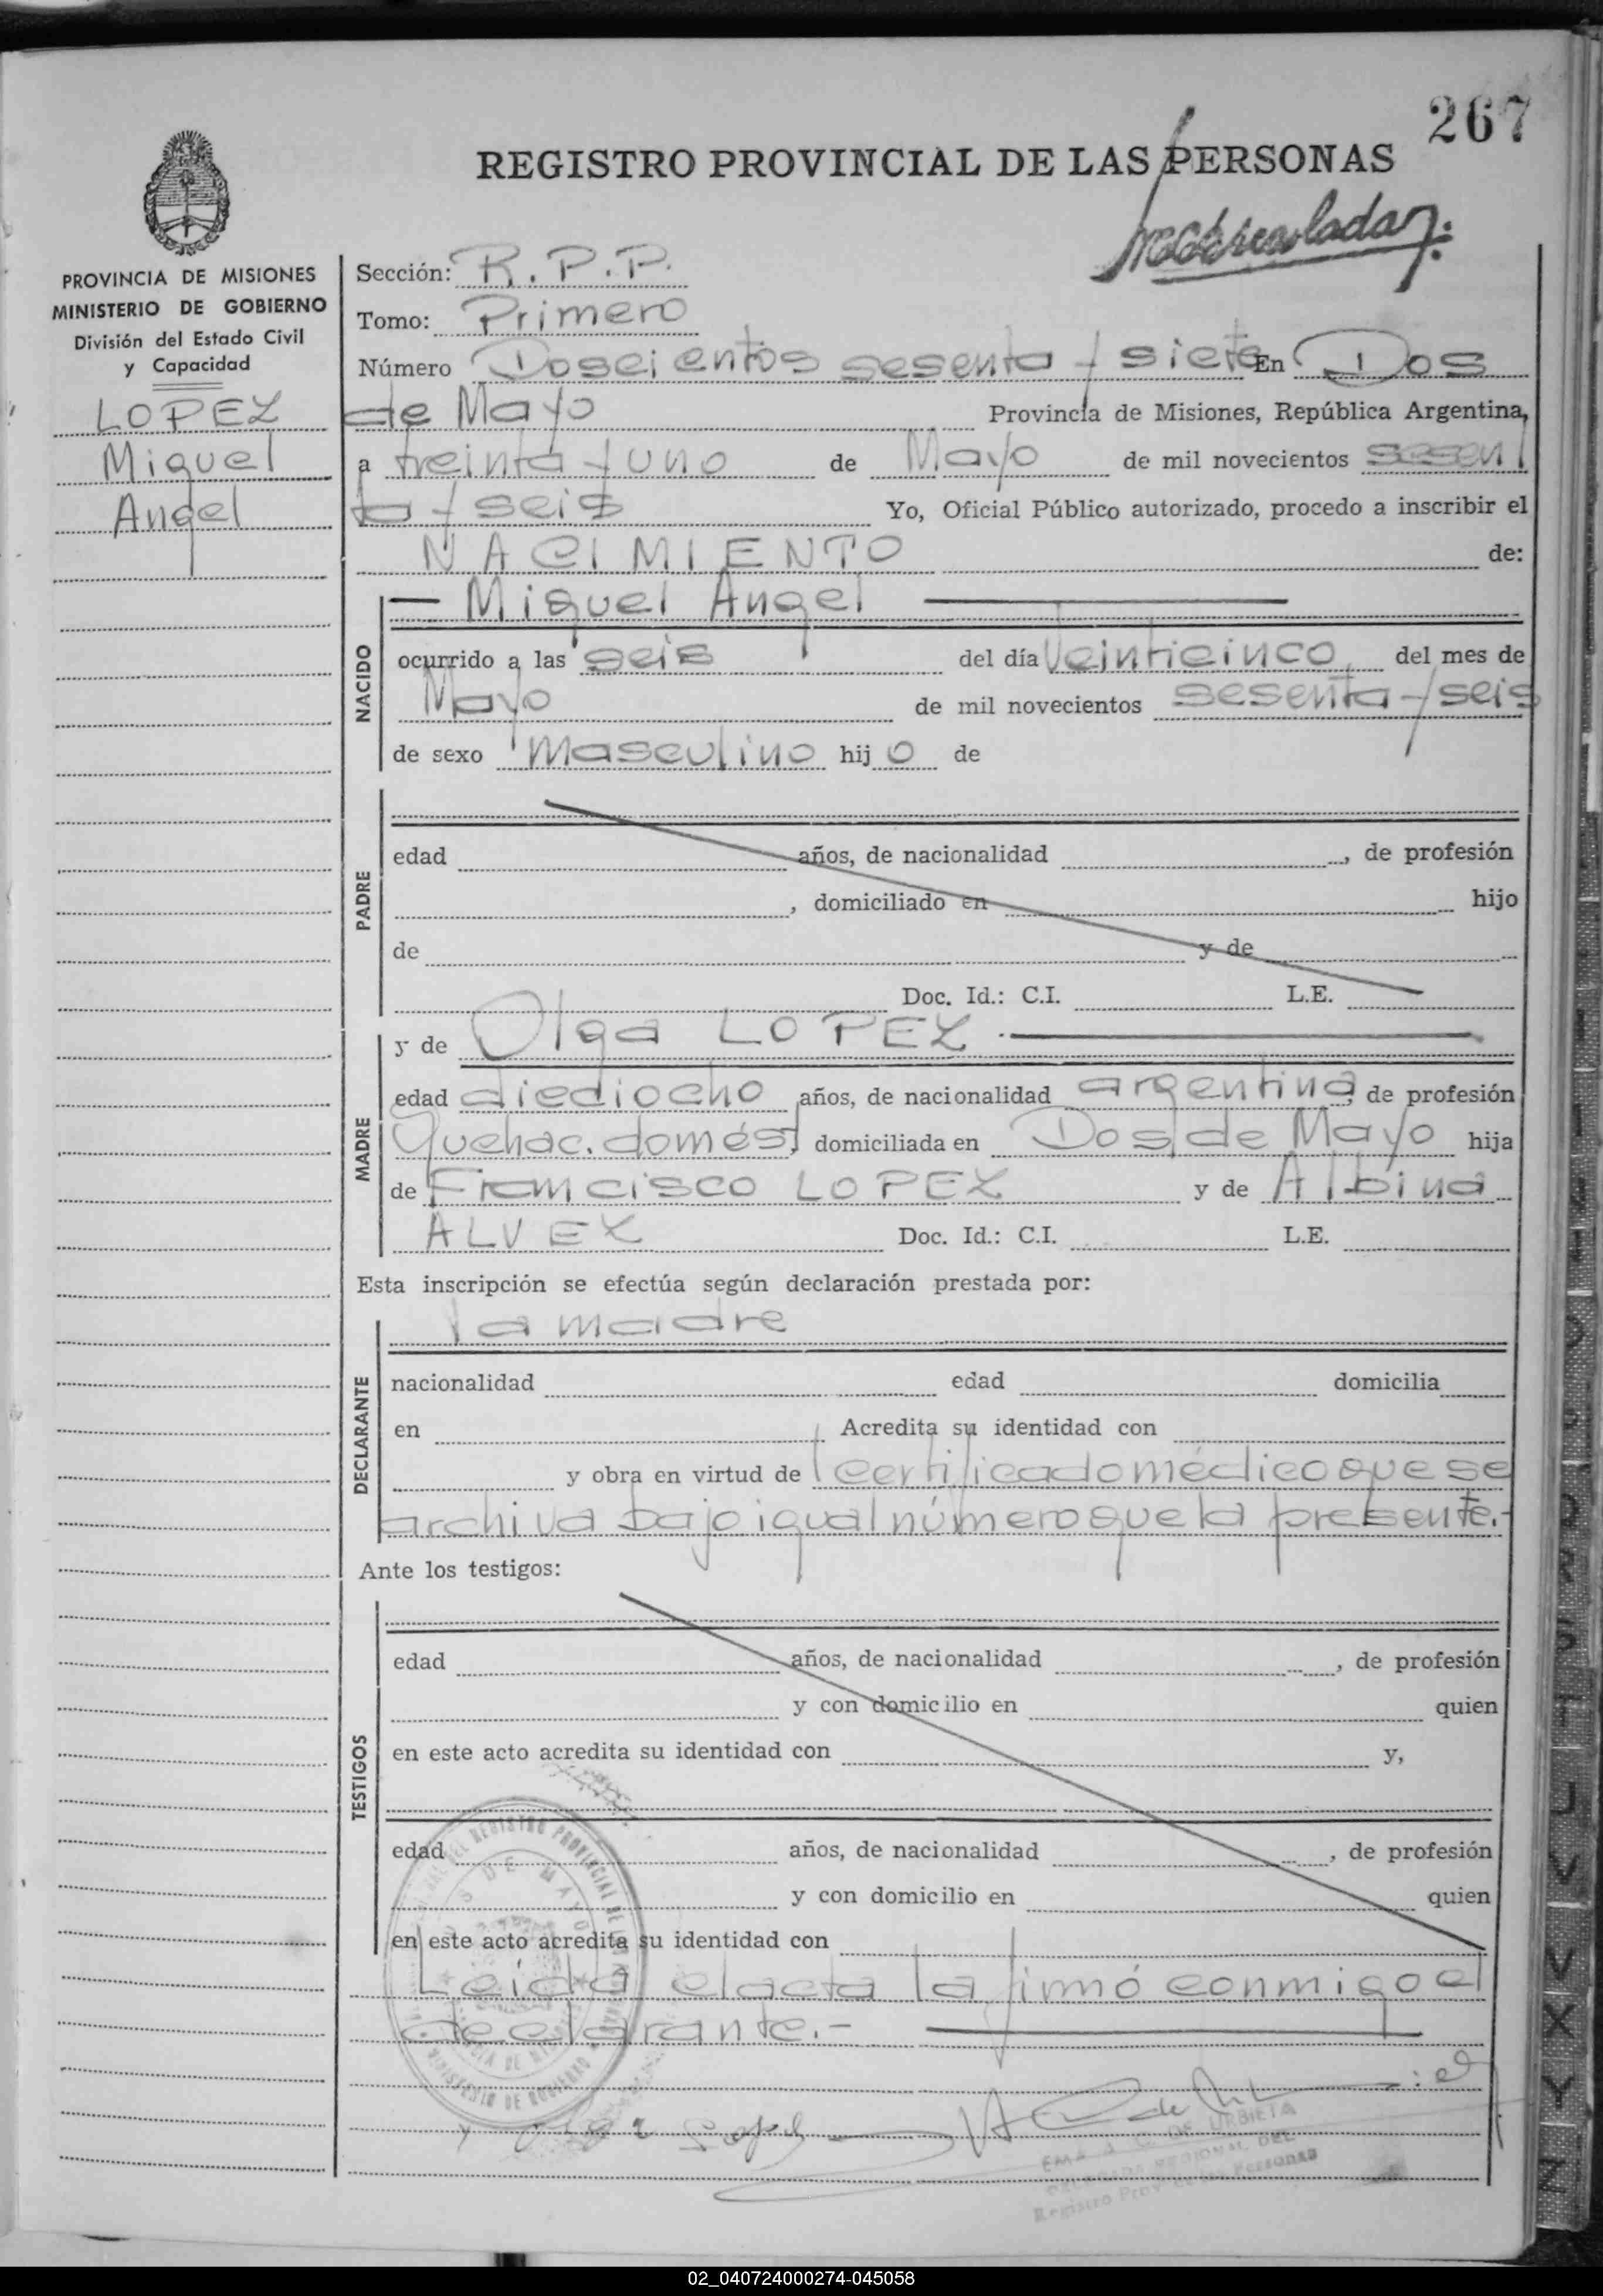 267
REGISTRO PROVINCIAL DE LAS PERSONAS
PROVINCIA DE MISIONES
MINISTERIO DE GOBIERNO
División del Estado Civil
y Capacidad
LOPEZ
Miguel
Angel
Sección: R.P.P.
Tomo: Primero
Número Doscientos sesenta y siete En Dos
de Mayo Provincia de Misiones, República Argentina,
a treinta y uno de Mayo de mil novecientos sesen
ta y seis Yo, Oficial Público autorizado, procedo a inscribir el
NACIMIENTO de:
NACIDO
— Miguel Angel —
ocurrido a las seis del día Veinticinco del mes de
Mayo de mil novecientos sesenta y seis
de sexo masculino hijo de
PADRE
edad años, de nacionalidad , de profesión
, domiciliado en hijo
de y de
Doc. Id.: C.I. L.E.
MADRE
y de Olga LOPEZ
edad diediocho años, de nacionalidad argentina, de profesión
Quehac. domést, domiciliada en Dos de Mayo hija
de Francisco LOPEZ y de Albina
ALVEZ Doc. Id.: C.I. L.E.
Esta inscripción se efectúa según declaración prestada por:
DECLARANTE
la madre
nacionalidad edad domicilia
en Acredita su identidad con
y obra en virtud de certificado médico que se
archiva bajo igual número que la presente.-
Ante los testigos:
TESTIGOS
edad años, de nacionalidad , de profesión
y con domicilio en quien
en este acto acredita su identidad con y,
edad años, de nacionalidad , de profesión
y con domicilio en quien
en este acto acredita su identidad con
Leida el acta la firmó conmigo el
declarante.-
EMA A. C. DE URBIETA
DELEGADA REGIONAL DEL
Registro Prov. de las Personas
02_040724000274-045058